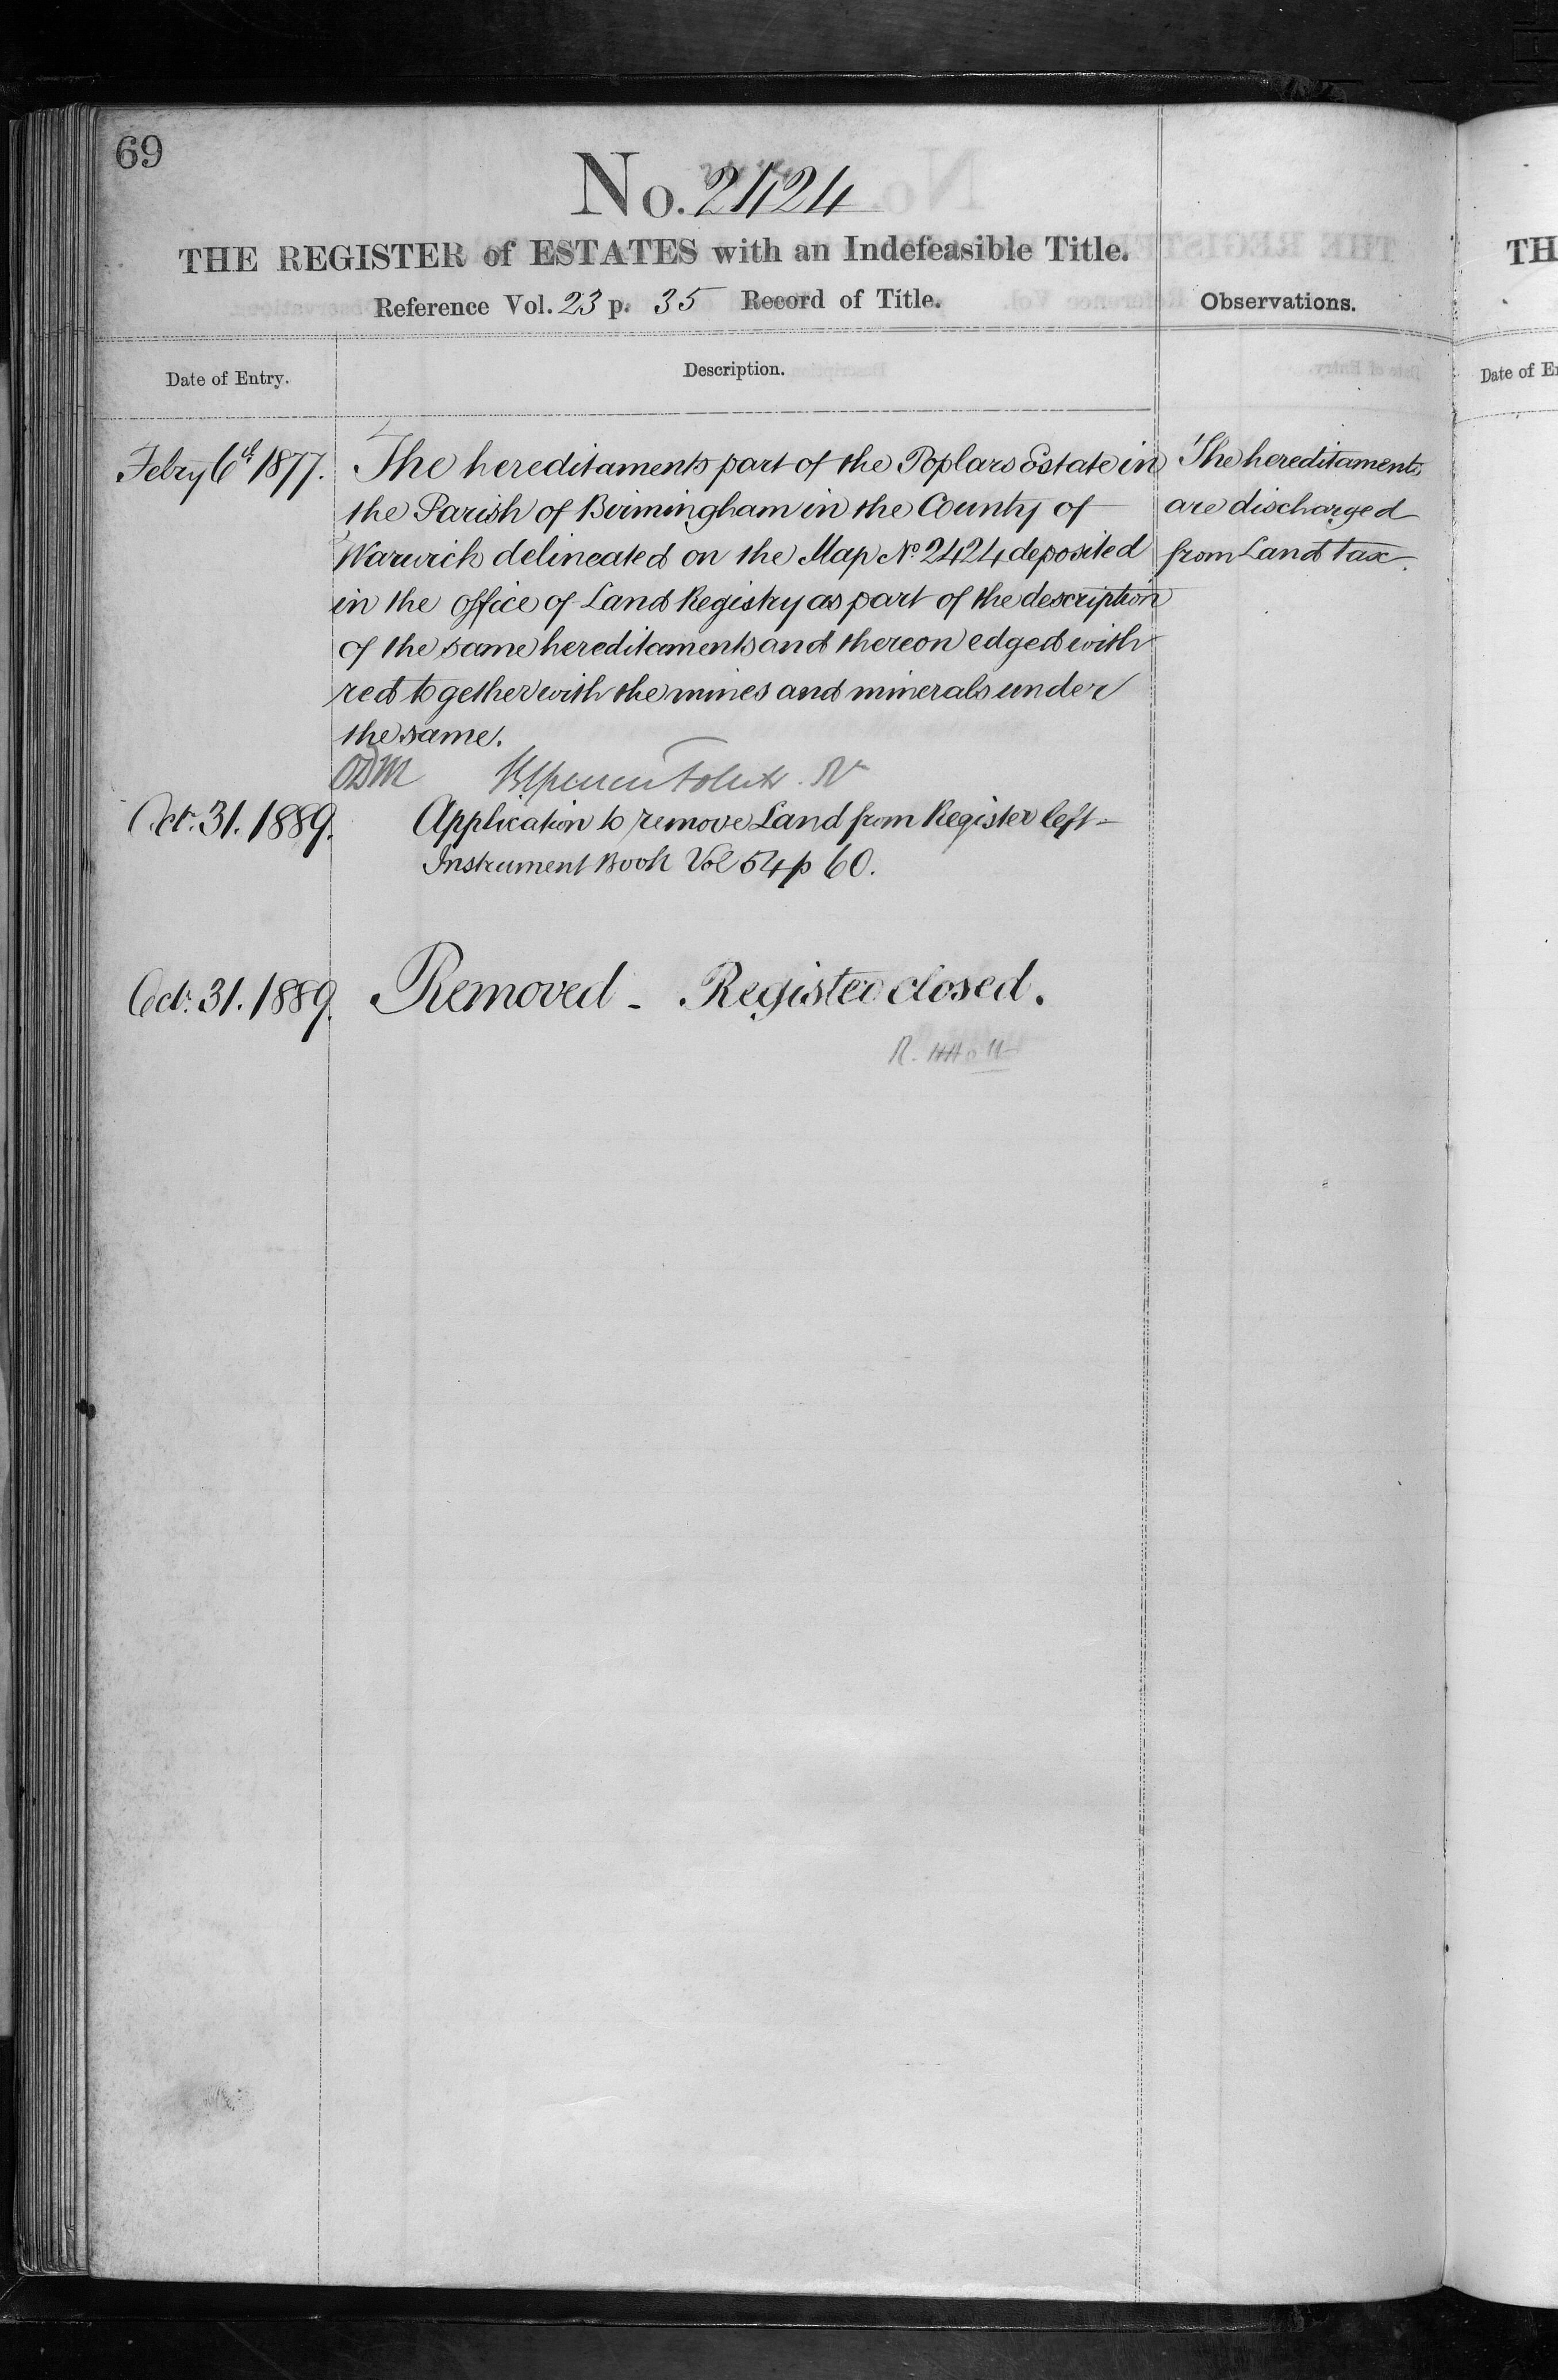 69
No. 2424
THE REGISTER of ESTATES with an Indefeasible Title.
Reference Vol. 23 p. 35 Record of Title.
Observations.
Date of Entry.
Description.
Febry 6th 1877.
The hereditaments part of the Poplars Estate in
the Parish of Birmingham in the County of
Warwick delineated on the Map No. 2424 deposited
in the office of Land Registry as part of the description
of the same hereditaments and thereon edged with
red together with the mines and minerals under
the same.
The hereditaments
are discharged
from Land tax.
Oct. 31. 1889.
Application to remove Land from Register left -
Instrument Book Vol 54 p 60.
Oct. 31. 1889.
Removed - Register closed.
TH
Date of E